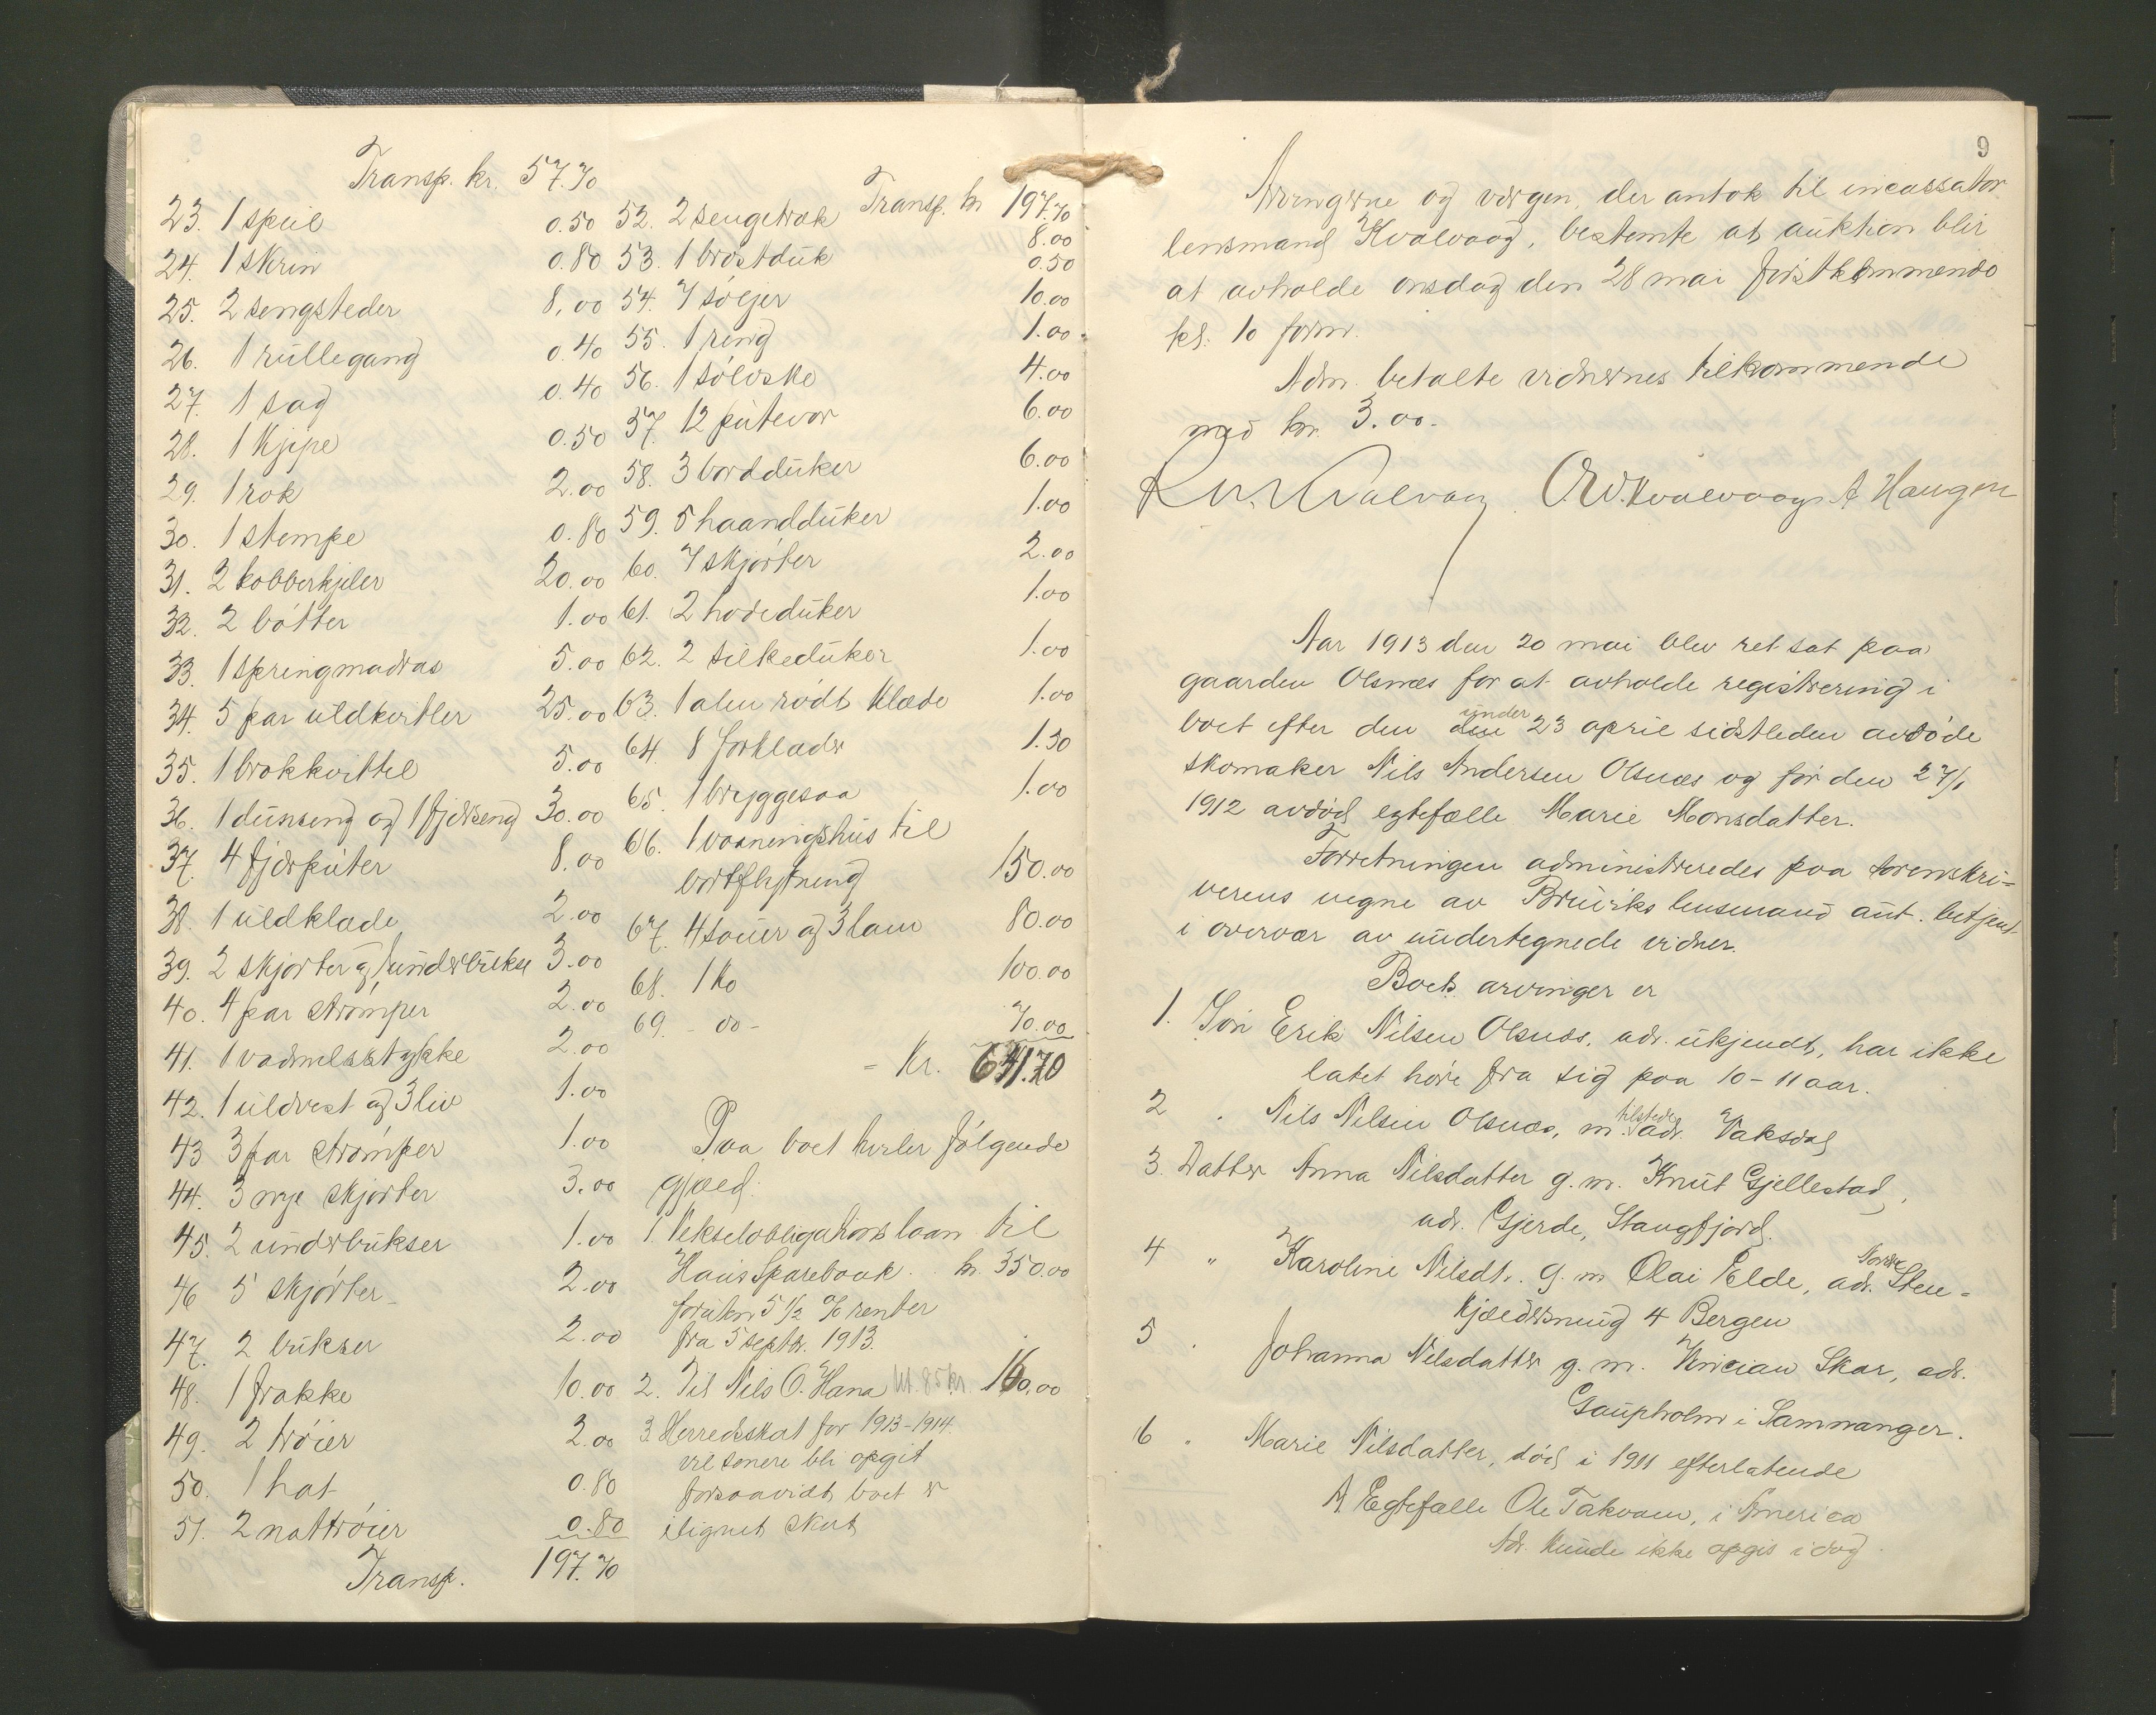 Transp. kr. 57.70
23. 1 speil 0.50
24. 1 skrin 0.80
25. 2 sengsteder 8,00
26. 1 rullegang 0.40
27. 1 sag 0.40
28. 1 kjipe 0.50
29. 1 rok 2.00
30. 1 stempe 0.80
31. 2 kobberkjeler 20.00
32. 2 bøtter 1.00
33. 1 springmadras 5.00
34. 5 par uldkvitler 25.00
35. 1 brokkvittel 5.00
36. 1 dunseng og 1 fjærseng 30.00
37. 4 fjærputer 8.00
38. 1 uldklæde 2.00
39. 2 skjorter og 1 underbukse 3.00
40. 4 par strømper 2.00
41. 1 vadmelsstykke 2.00
42. 1 uldvest og 3 liv 1.00
43 3 par strømper 1.00
44. 3 nye skjorter 3.00
45. 2 underbukser 1.00
46 5 skjorter 2.00
47. 2 bukser 2.00
48. 1 frakke 10.00
49. 2 trøier 2.00
50. 1 hat 0.80
51. 2 nattrøier 0.80
Transp. 197.70
Transp. kr 197.70
52. 2 sengetræk 8.00
53. 1 brøstduk 0.50
54. 7 søljer 10.00
55. 1 ring 1.00
56. 1 sølvske 4.00
57. 12 putevar 6.00
58. 3 bordduker 6.00
59. 5 haandduker 1.00
60. 7 skjorter 2.00
61. 2 hodeduker 1.00
62. 2 silkeduker 1.00
63. 1 alen rødt klæde 1.00
64. 8 forklæder 1.50
65. 1 bryggesaa 1.00
66. 1 vaaningshus til
bortflytning 150.00
67. 4 sauer og 3 lam 80.00
68. 1 ko 100.00
69. - do - 70.00
= Kr. 641.70
Paa boet hviler følgende
gjæld:
1. Vekselobligationslaan til
Haus Sparebank. kr. 350.00
foruten 5 1/2 % renter
fra 5 septbr. 1913.
2. Til Nils O. Hana 85 kr. 160.00
3 Herredsskat for 1913-1914.
vil senere bli opgit
forsaavidt boet er
ilignet skat
9
Arvingerne og værgen, der antok til incassator
lensmand Kvalvaag, bestemte at auktion blir
at avholde onsdag den 28 mai førstkommende
kl. 10 form.
Adm. betalte vidnernes tilkommende
med kr. 3.00.
Kvalvaag O W. Kvalvaag A Haugen
Aar 1913 den 20 mai blev ret sat paa
gaarden Olsnæs for at avholde registrering i
under
boet efter den den 23 april sidstleden avdøde
skomaker Nils Andersen Olsnæs og før den 27/1
1912 avdød egtefælle Marie Monsdatter.
Forretningen administreredes paa sorenskri-
verens vegne av Bruviks lensmand aut. betjent
i overvær av undertegnede vidner.
Boets arvinger er
1. Søn Erik Nilsen Olsnæs, adr. ukjendt, har ikke
latet høre fra sig paa 10-11 aar.
tilstede
2 " Nils Nilsen Olsnæs, m. adr. Vaksdal
3. Datter Anna Nilsdatter g. m. Knut Gjellestad,
adr. Gjerde, Stangfjord.
Nordre
4 " Karoline Nilsdt. g. m Olai Elde, adr. Sten-
kjældersmug 4 Bergen
5 " Johanna Nilsdatter g. m. Skar, adr.
Gaupholm i Samnanger.
6 " Marie Nilsdatter, død i 1911 efterlatende
A Egtefælle Ole Takvam, i America
Adr. kunde ikke opgis idag.